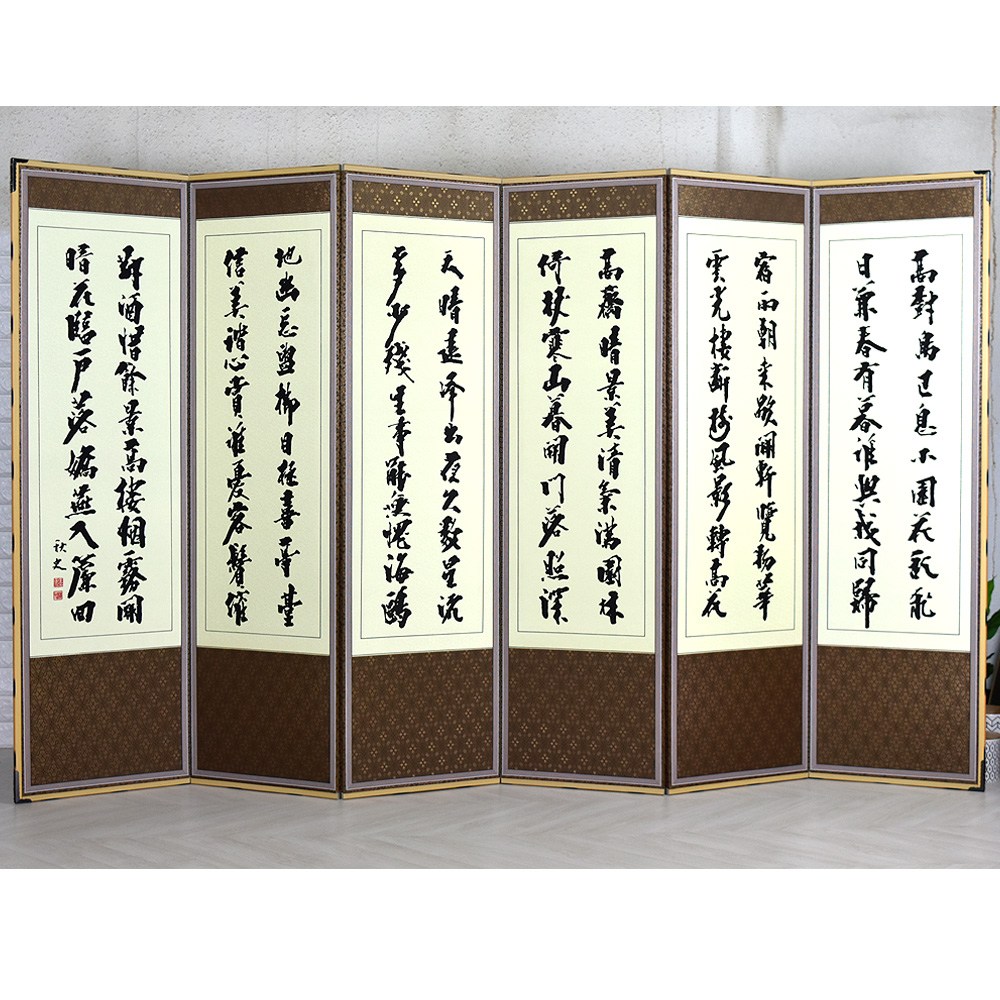 高對鳥已息小園花亂飛
日兼春有暮誰與我同歸
宿雨朝來歇開軒覽物華
雲光樓斷樹風影轉高花
高齋晴景美清氣滿園林
倚杖寒山暮開門落照深
天晴遠峰出夜久數星沉
多少殘生事能無愧海鷗
地幽忘盥櫛日極喜亭臺
信美諧心賞誰憂容鬢催
對酒惜餘景高樓烟霧開
晴花臨戶落嬌燕入簾回
秋史